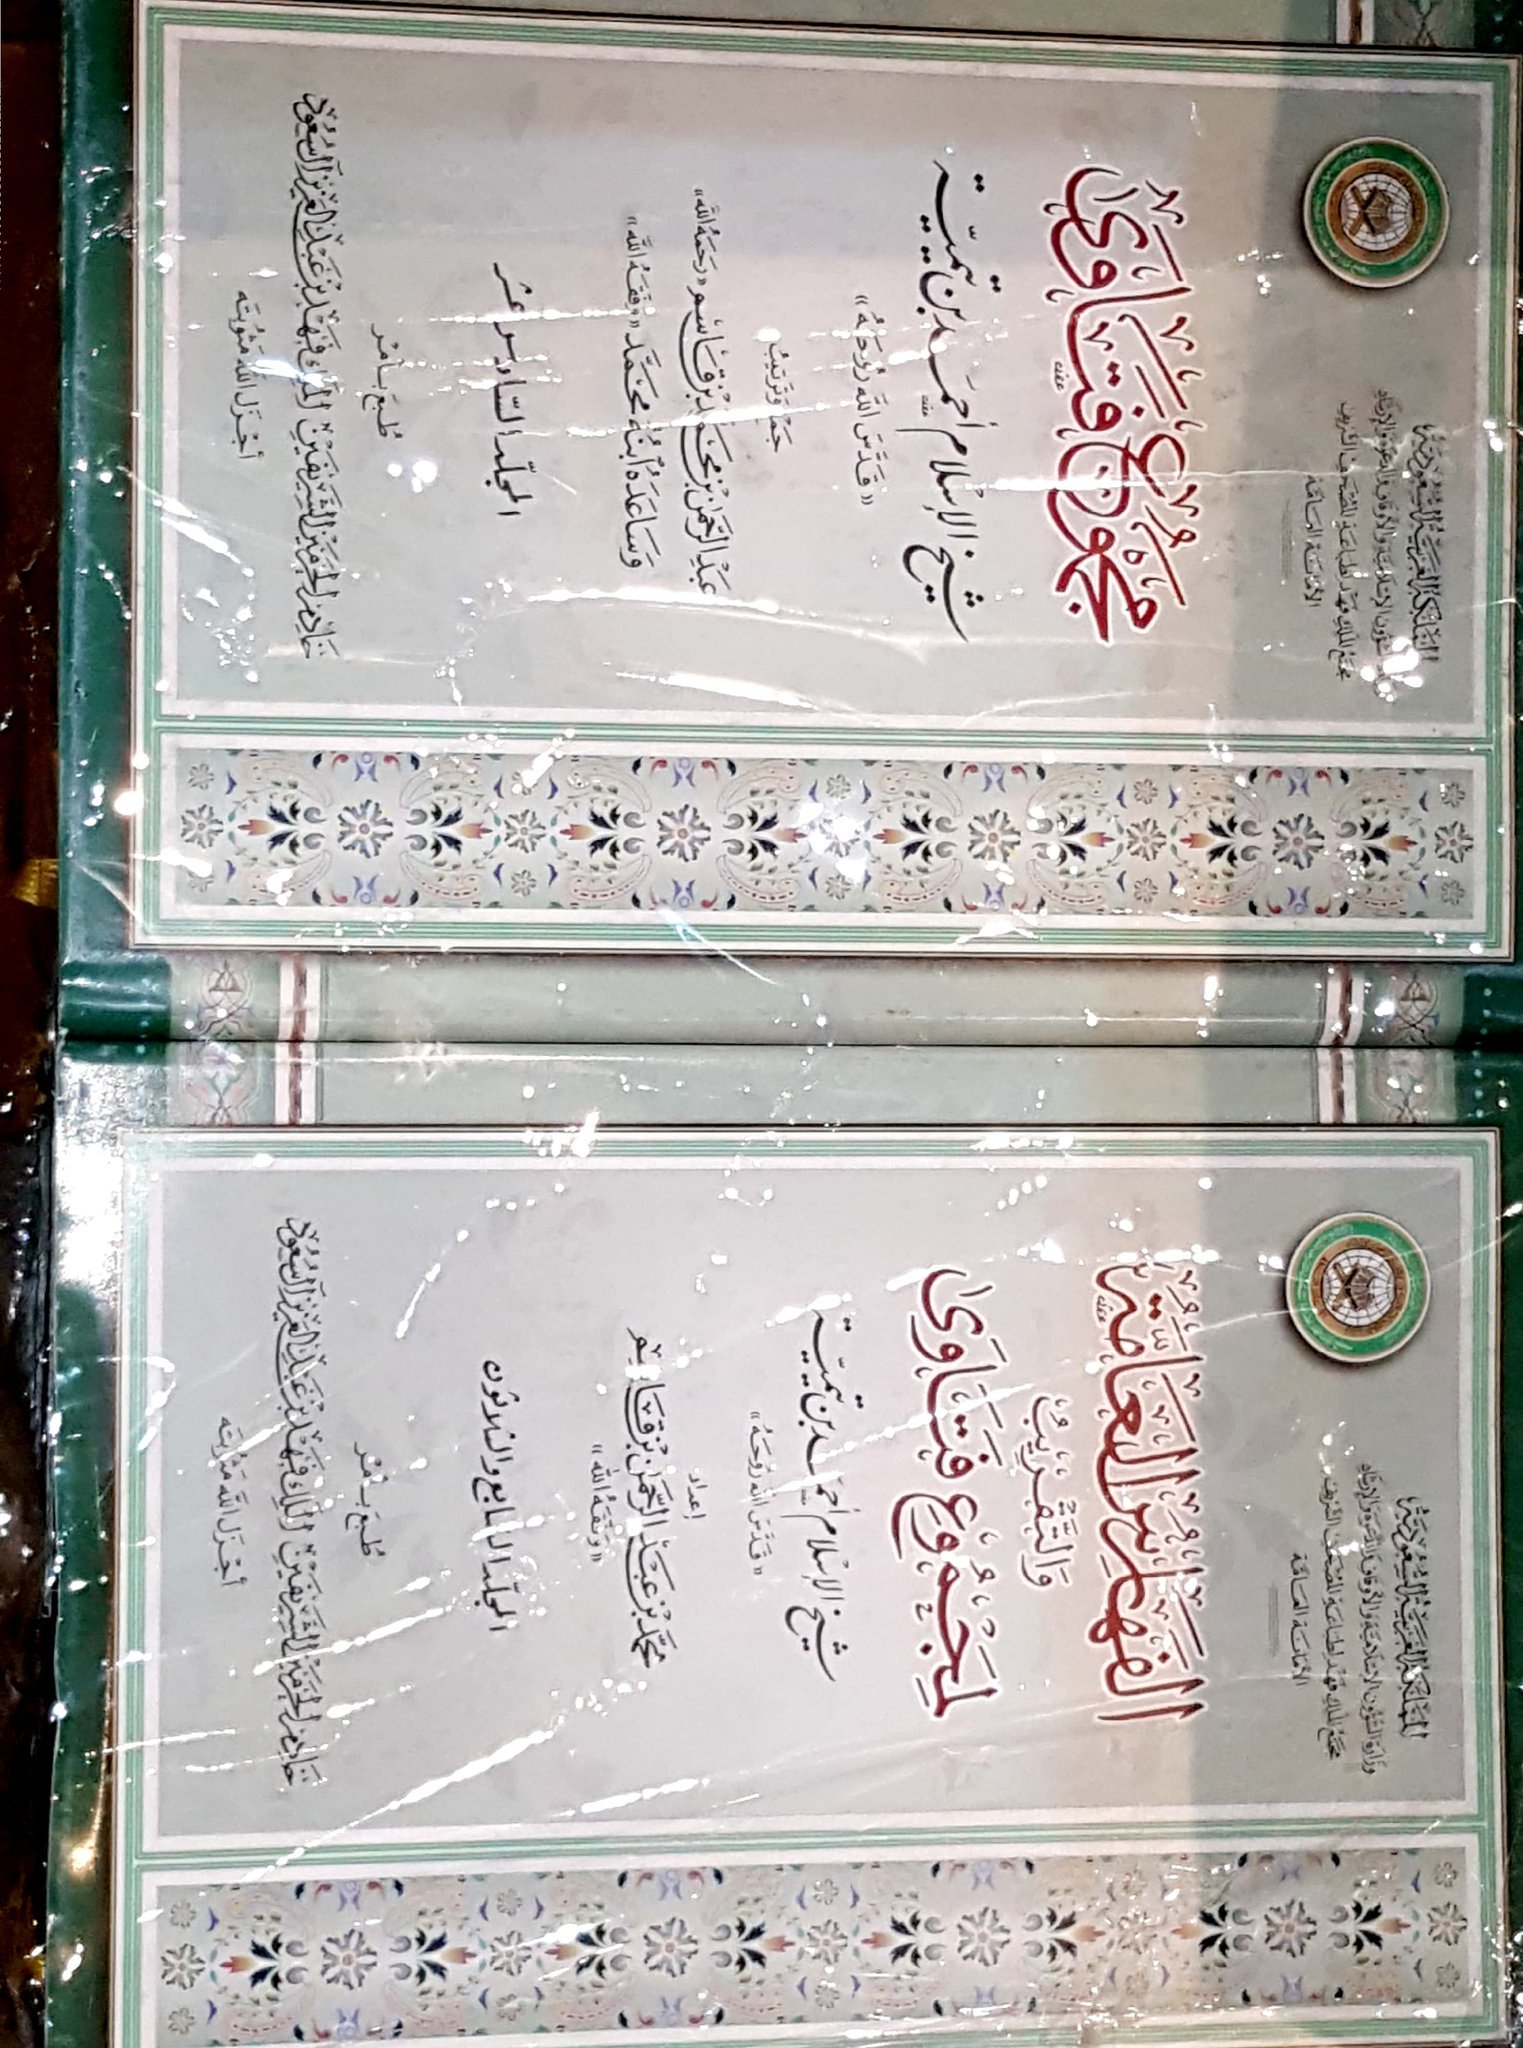 المملكة العربية السعودية
وزارة الشؤون الإسلامية والأوقاف والدعوة والإرشاد
مجمع الملك فهد لطباعة المصحف الشريف
الأمانة العامة
مَجْمُوعُ فَتَاوَىٰ
شيخ الإسلام أحمد بن تيمية
«قَدَّسَ اللهُ رُوحَهُ»
جَمْعُ وَتَرْتِيبُ
عَبْدِ الرَّحْمٰنِ بْنِ مُحَمَّدِ بْنِ قَاسِمٍ «رَحِمَهُ اللهُ»
وَسَاعَدَهُ ابْنُهُ مُحَمَّد «وَفَّقَهُ اللهُ»
المجلّد السّادس عشر
طُبِعَ بِأَمْرِ
خَادِمِ الحَرَمَيْنِ الشَّرِيفَيْنِ المَلِكِ فَهْدِ بْنِ عَبْدِ العَزِيزِ آلِ سُعُود
أَجْزَلَ اللهُ مَثُوبَتَه
المملكة العربية السعودية
وزارة الشؤون الإسلامية والأوقاف والدعوة والإرشاد
مجمع الملك فهد لطباعة المصحف الشريف
الأمانة العامة
الفَهَارِسُ العَامَّةُ
وَالتَّقْرِيبُ
لِمَجْمُوعِ فَتَاوَىٰ
شيخ الإسلام أحمد بن تيمية
«قَدَّسَ اللهُ رُوحَهُ»
إعداد
مُحَمَّد بْن عَبْدِ الرَّحْمٰنِ بْنِ قَاسِمٍ
«وَفَّقَهُ اللهُ»
المجلّد السابع والثلاثون
طُبِعَ بِأَمْرِ
خَادِمِ الحَرَمَيْنِ الشَّرِيفَيْنِ المَلِكِ فَهْدِ بْنِ عَبْدِ العَزِيزِ آلِ سُعُود
أَجْزَلَ اللهُ مَثُوبَتَه